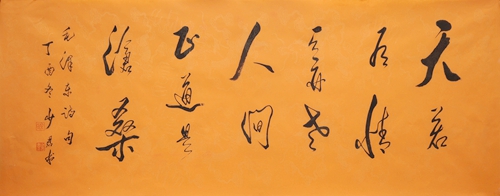 天若
有情
天亦老
人间
正道是
沧桑
毛泽东诗句
丁酉冬